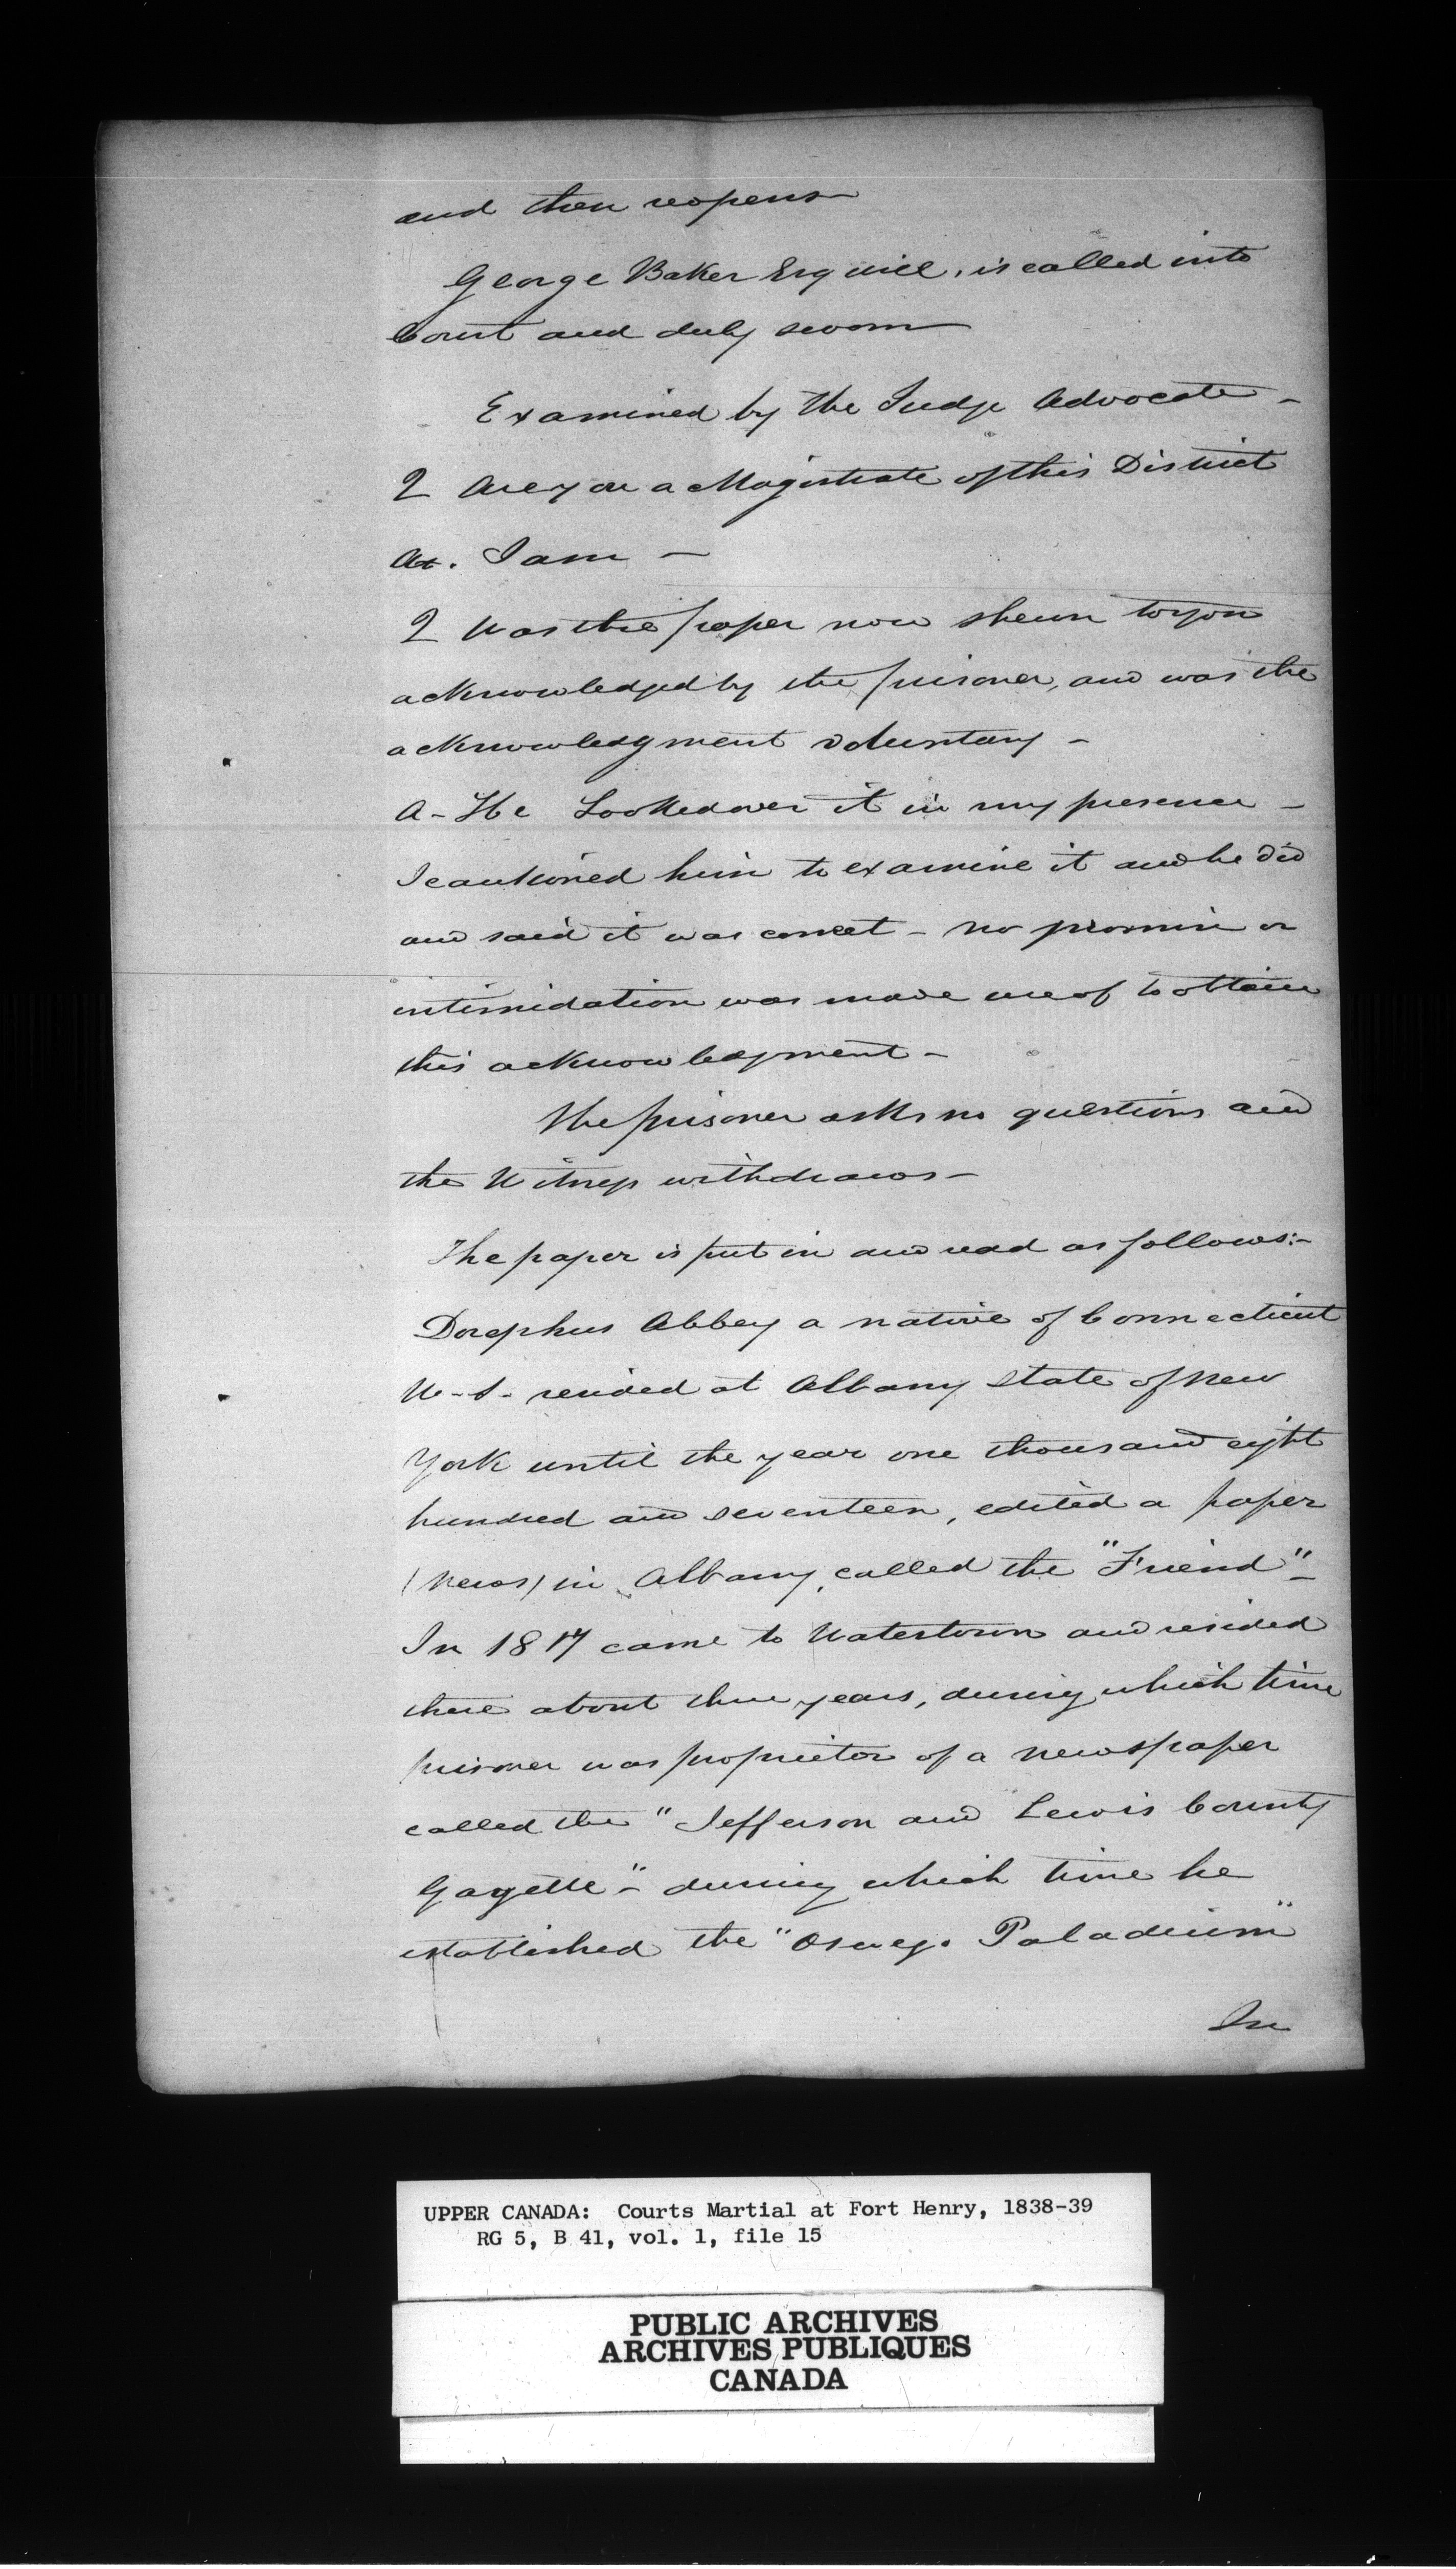 and then reopens—
George Baker Esquire, is called into
Court and duly sworn—
Examined by the Judge Advocate—
Q Are you a Magistrate of this District
A. I am —
Q Was the paper now shewn to you
acknowledged by the prisoner, and was the
acknowledgment voluntary —
A - He Looked over it in my presence —
I cautioned him to examine it and he did
and said it was correct - no promise or
intimidation was made use of to obtain
this acknowledgment —
The prisoner asks no questions and
the Witness withdraws —
The paper is put in and read as follows:—
Dorephus Abbey a native of Connecticut
U-S- resided at Albany State of New
York until the year one thousand eight
hundred and seventeen, edited a paper
(news) in Albany, called the "Friend"—
In 1817 came to Watertown and resided
there about three years, during which time
prisoner was proprietor of a newspaper
called the "Jefferson and Lewis County
Gazette"— during which time he
established the "Oswego Paladium"
In
UPPER CANADA: Courts Martial at Fort Henry, 1838-39
RG 5, B 41, vol. 1, file 15
PUBLIC ARCHIVES
ARCHIVES PUBLIQUES
CANADA